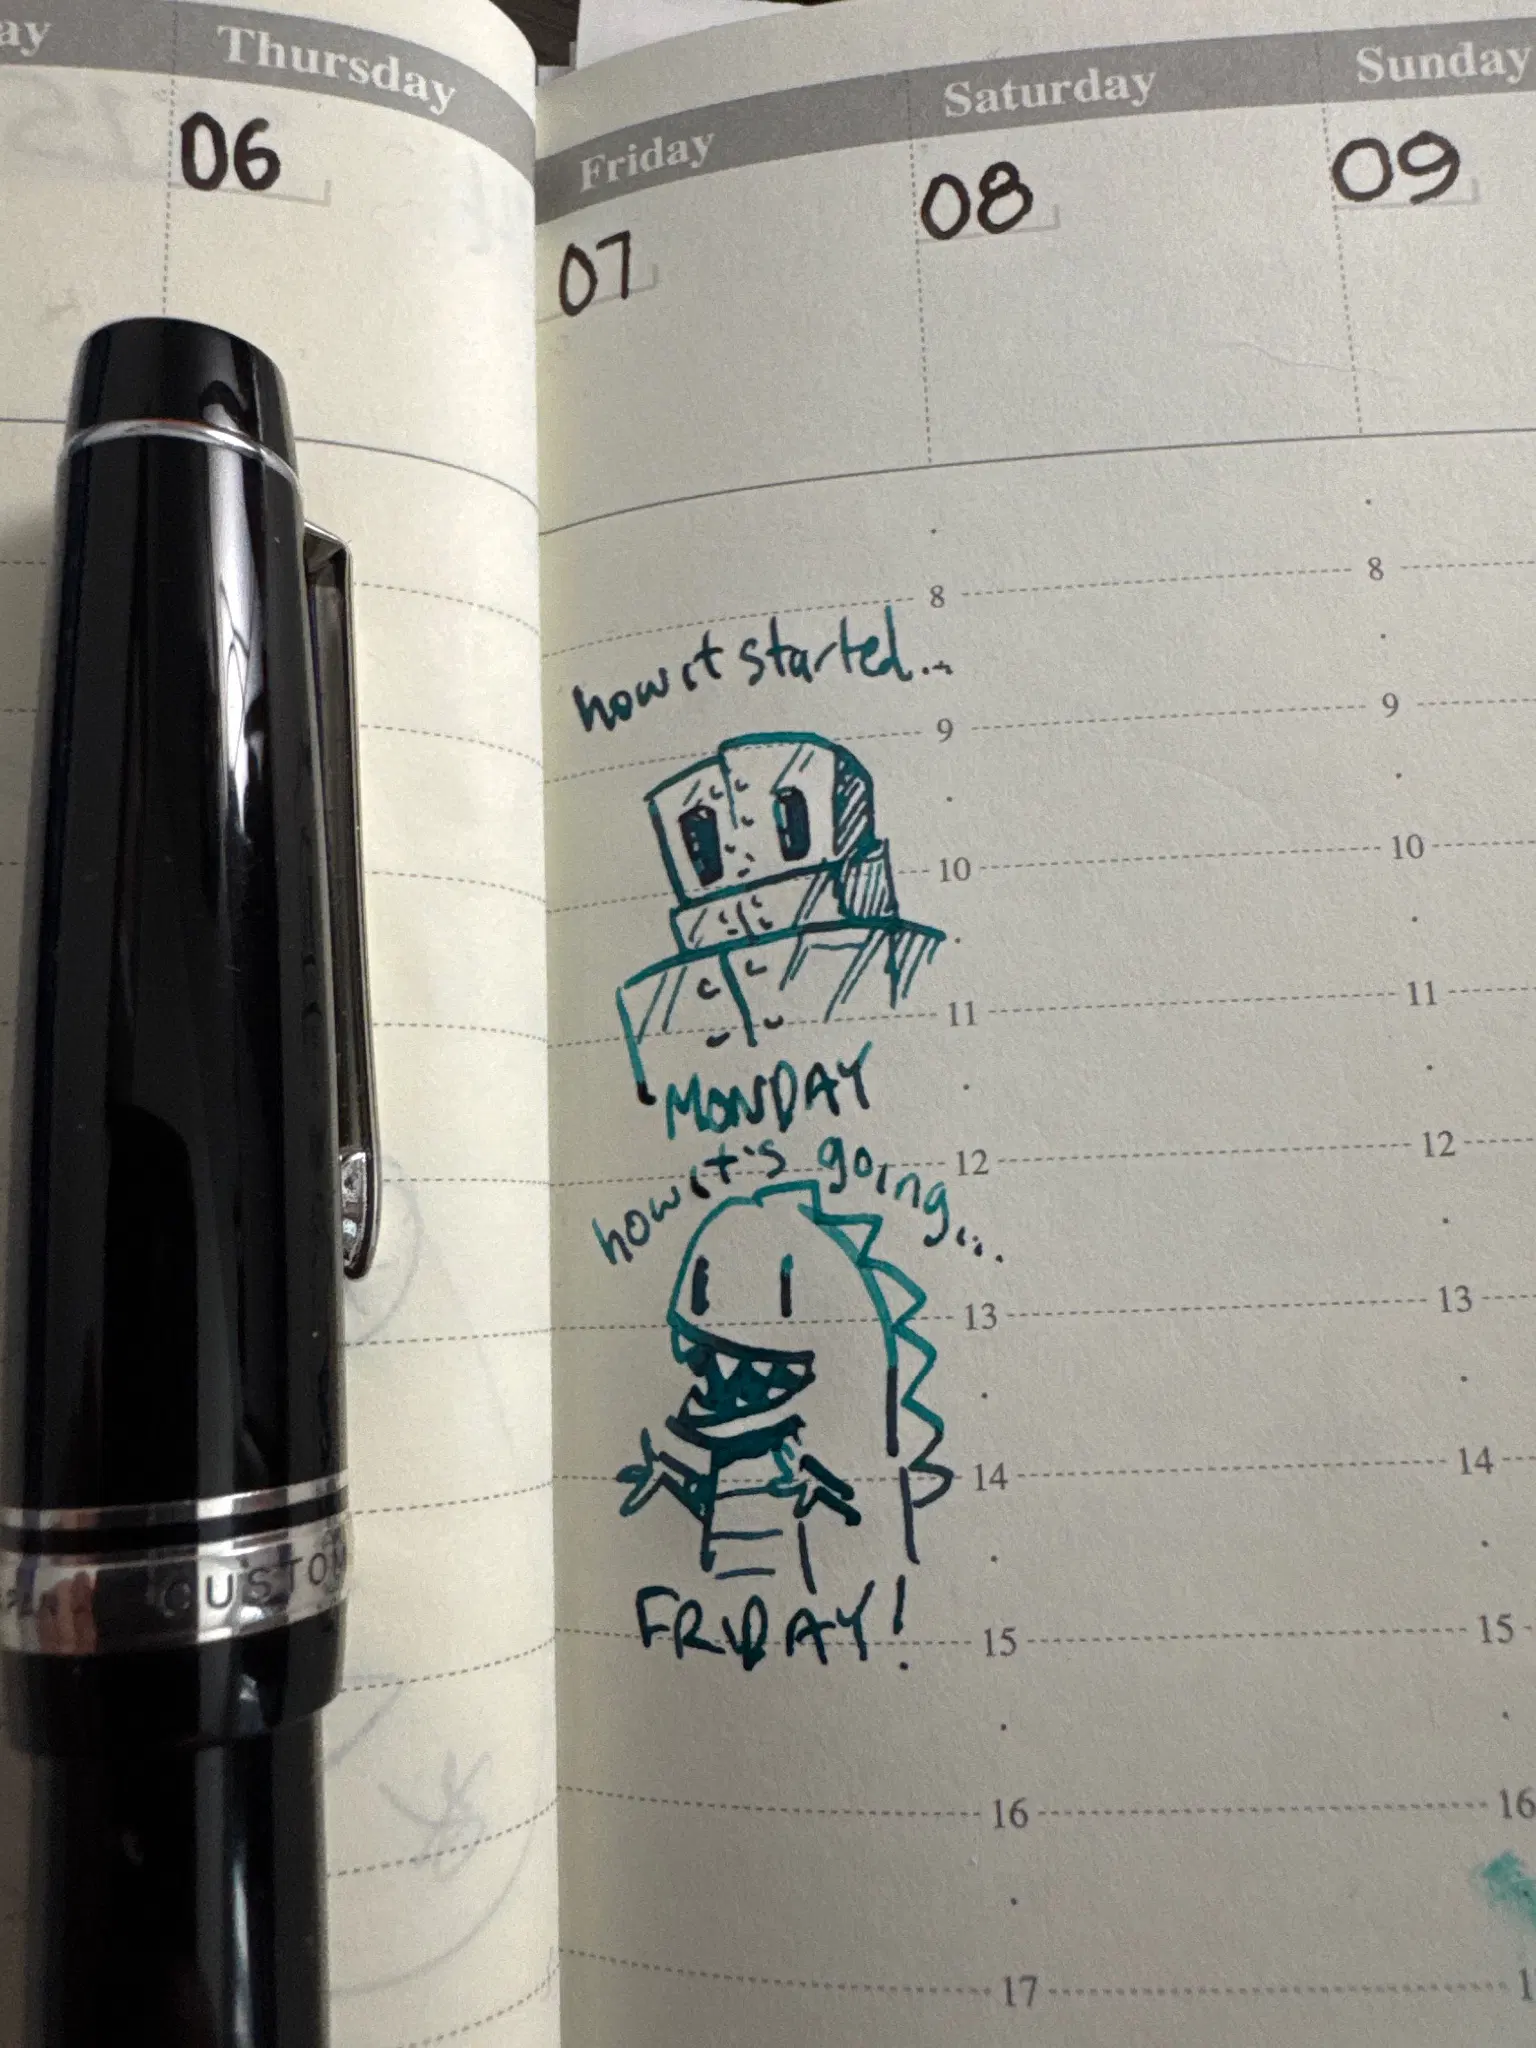 Thursday
06
Friday
07
Saturday
08
Sunday
09
8
8
how it started...
9
9
10
10
11
11
MONDAY
12
12
how it's going...
13
13
14
14
CUSTOM
FRIDAY!
15
15
16
16
17